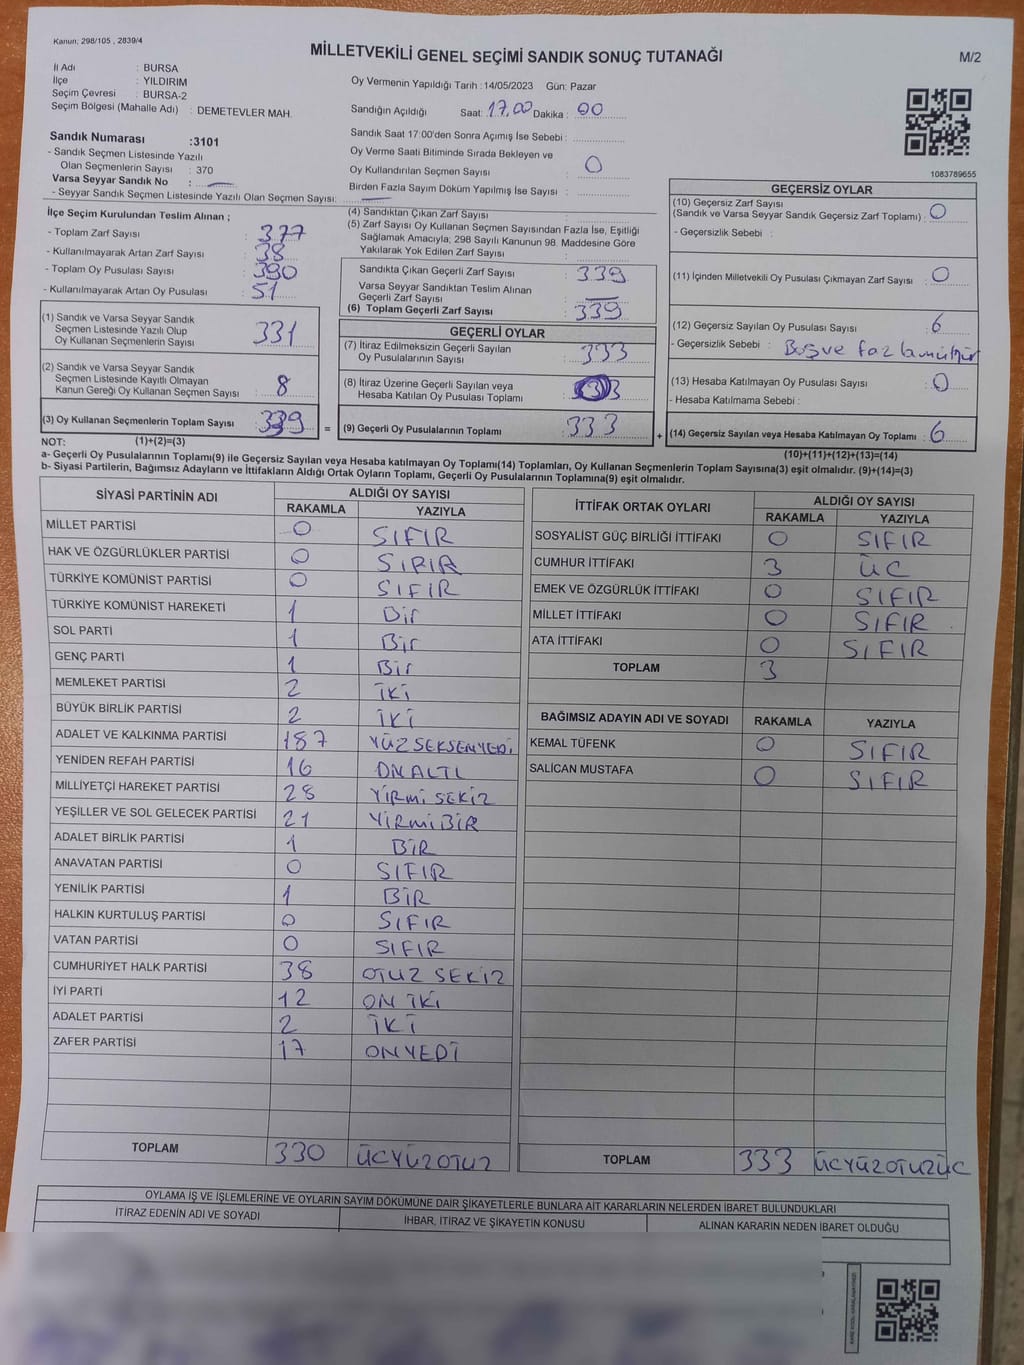 Kanun; 298/105 , 2839/4
MİLLETVEKİLİ GENEL SEÇİMİ SANDIK SONUÇ TUTANAĞI
M/2
İl Adı : BURSA
İlçe : YILDIRIM
Seçim Çevresi : BURSA-2
Seçim Bölgesi (Mahalle Adı) : DEMETEVLER MAH.
Oy Vermenin Yapıldığı Tarih :14/05/2023 Gün: Pazar
Sandığın Açıldığı Saat: 17,00 Dakika : 00
Sandık Saat 17:00'den Sonra Açımış İse Sebebi :
Oy Verme Saati Bitiminde Sırada Bekleyen ve
Oy Kullandırılan Seçmen Sayısı : 0
Birden Fazla Sayım Döküm Yapılmış İse Sayısı :
1083789655
Sandık Numarası :3101
- Sandık Seçmen Listesinde Yazılı
Olan Seçmenlerin Sayısı : 370
Varsa Seyyar Sandık No : —
- Seyyar Sandık Seçmen Listesinde Yazılı Olan Seçmen Sayısı: —
İlçe Seçim Kurulundan Teslim Alınan ;
- Toplam Zarf Sayısı : 377
- Kullanılmayarak Artan Zarf Sayısı : 38
- Toplam Oy Pusulası Sayısı : 390
- Kullanılmayarak Artan Oy Pusulası : 51
(1) Sandık ve Varsa Seyyar Sandık
Seçmen Listesinde Yazılı Olup
Oy Kullanan Seçmenlerin Sayısı : 331
(2) Sandık ve Varsa Seyyar Sandık
Seçmen Listesinde Kayıtlı Olmayan
Kanun Gereği Oy Kullanan Seçmen Sayısı : 8
(3) Oy Kullanan Seçmenlerin Toplam Sayısı : 339
(4) Sandıktan Çıkan Zarf Sayısı :
(5) Zarf Sayısı Oy Kullanan Seçmen Sayısından Fazla İse, Eşitliği
Sağlamak Amacıyla; 298 Sayılı Kanunun 98. Maddesine Göre
Yakılarak Yok Edilen Zarf Sayısı :
Sandıkta Çıkan Geçerli Zarf Sayısı : 339
Varsa Seyyar Sandıktan Teslim Alınan
Geçerli Zarf Sayısı : —
(6) Toplam Geçerli Zarf Sayısı : 339
GEÇERLİ OYLAR
(7) İtiraz Edilmeksizin Geçerli Sayılan
Oy Pusulalarının Sayısı : 333
(8) İtiraz Üzerine Geçerli Sayılan veya
Hesaba Katılan Oy Pusulası Toplamı :
= (9) Geçerli Oy Pusulalarının Toplamı : 333
GEÇERSİZ OYLAR
(10) Geçersiz Zarf Sayısı
(Sandık ve Varsa Seyyar Sandık Geçersiz Zarf Toplamı) : 0
- Geçersizlik Sebebi :
(11) İçinden Milletvekili Oy Pusulası Çıkmayan Zarf Sayısı : 0
(12) Geçersiz Sayılan Oy Pusulası Sayısı : 6
- Geçersizlik Sebebi : Boş ve fazla mühür
(13) Hesaba Katılmayan Oy Pusulası Sayısı : 0
- Hesaba Katılmama Sebebi :
+ (14) Geçersiz Sayılan veya Hesaba Katılmayan Oy Toplamı : 6
NOT: (1)+(2)=(3)
(10)+(11)+(12)+(13)=(14)
a- Geçerli Oy Pusulalarının Toplamı(9) ile Geçersiz Sayılan veya Hesaba katılmayan Oy Toplamı(14) Toplamları, Oy Kullanan Seçmenlerin Toplam Sayısına(3) eşit olmalıdır. (9)+(14)=(3)
b- Siyasi Partilerin, Bağımsız Adayların ve İttifakların Aldığı Ortak Oyların Toplamı, Geçerli Oy Pusulalarının Toplamına(9) eşit olmalıdır.
SİYASİ PARTİNİN ADI ALDIĞI OY SAYISI
RAKAMLA YAZIYLA
MİLLET PARTİSİ 0 SIFIR
HAK VE ÖZGÜRLÜKLER PARTİSİ 0 SIFIR
TÜRKİYE KOMÜNİST PARTİSİ 0 SIFIR
TÜRKİYE KOMÜNİST HAREKETİ 1 Bir
SOL PARTİ 1 Bir
GENÇ PARTİ 1 Bir
MEMLEKET PARTİSİ 2 İKİ
BÜYÜK BİRLİK PARTİSİ 2 İKİ
ADALET VE KALKINMA PARTİSİ 187 YÜZ SEKSENYEDİ
YENİDEN REFAH PARTİSİ 16 ONALTI
MİLLİYETÇİ HAREKET PARTİSİ 28 YİRMİ SEKİZ
YEŞİLLER VE SOL GELECEK PARTİSİ 21 YİRMİBİR
ADALET BİRLİK PARTİSİ 1 BİR
ANAVATAN PARTİSİ 0 SIFIR
YENİLİK PARTİSİ 1 BİR
HALKIN KURTULUŞ PARTİSİ 0 SIFIR
VATAN PARTİSİ 0 SIFIR
CUMHURİYET HALK PARTİSİ 38 OTUZ SEKİZ
İYİ PARTİ 12 ON İKİ
ADALET PARTİSİ 2 İKİ
ZAFER PARTİSİ 17 ONYEDİ
TOPLAM 330 ÜÇYÜZOTUZ
İTTİFAK ORTAK OYLARI ALDIĞI OY SAYISI
RAKAMLA YAZIYLA
SOSYALİST GÜÇ BİRLİĞİ İTTİFAKI 0 SIFIR
CUMHUR İTTİFAKI 3 ÜÇ
EMEK VE ÖZGÜRLÜK İTTİFAKI 0 SIFIR
MİLLET İTTİFAKI 0 SIFIR
ATA İTTİFAKI 0 SIFIR
TOPLAM 3
BAĞIMSIZ ADAYIN ADI VE SOYADI RAKAMLA YAZIYLA
KEMAL TÜFENK 0 SIFIR
SALİCAN MUSTAFA 0 SIFIR
TOPLAM 333 ÜCYÜZOTUZÜC
OYLAMA İŞ VE İŞLEMLERİNE VE OYLARIN SAYIM DÖKÜMÜNE DAİR ŞİKAYETLERLE BUNLARA AİT KARARLARIN NELERDEN İBARET BULUNDUKLARI
İTİRAZ EDENİN ADI VE SOYADI İHBAR, İTİRAZ VE ŞİKAYETİN KONUSU ALINAN KARARIN NEDEN İBARET OLDUĞU